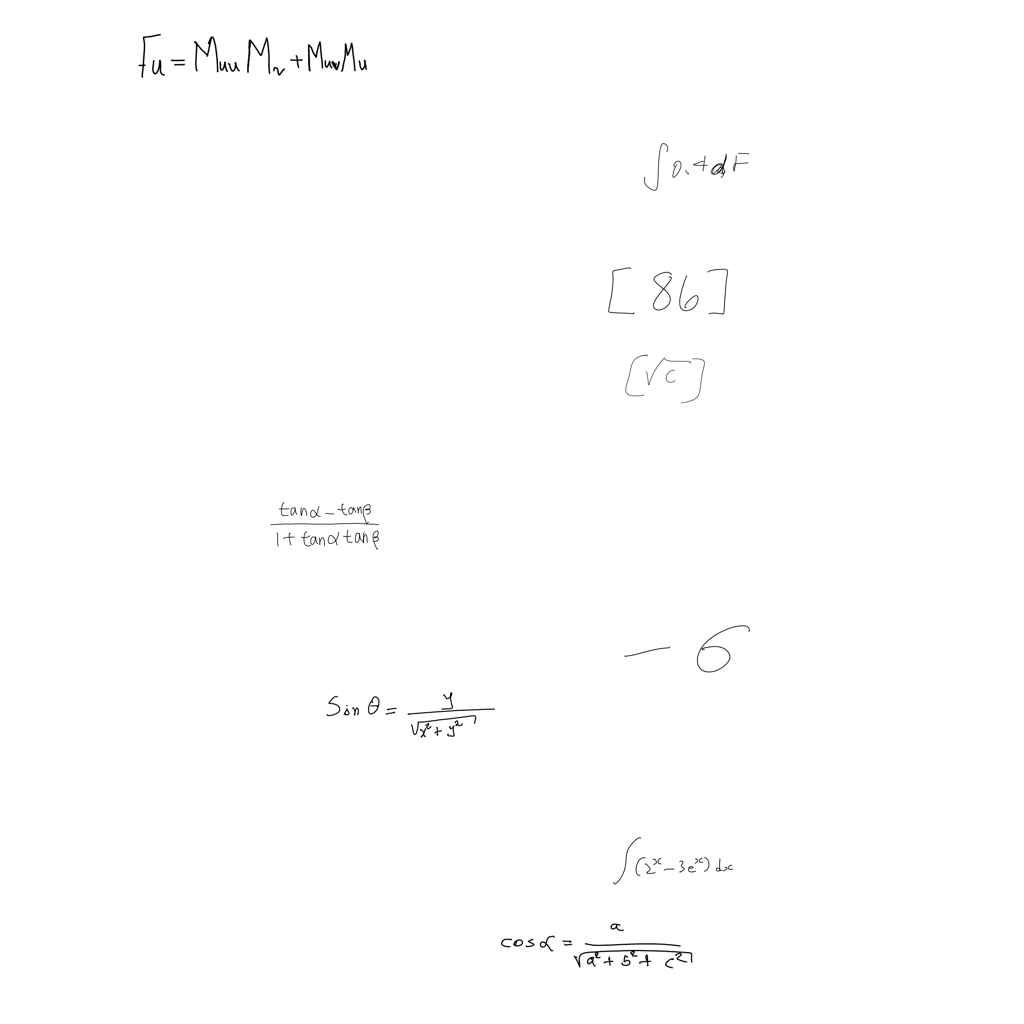 F_u = M_{uu} M_v + M_{uv} M_u
∫ 0.4 dF
[86]
[√c]
\frac{tanα - tanβ}{1 + tanα tanβ}
-6
Sin θ = \frac{y}{\sqrt{x^2 + y^2}}
∫ (2^x - 3e^x) dx
cos α = \frac{a}{\sqrt{a^2 + b^2 + c^2}}